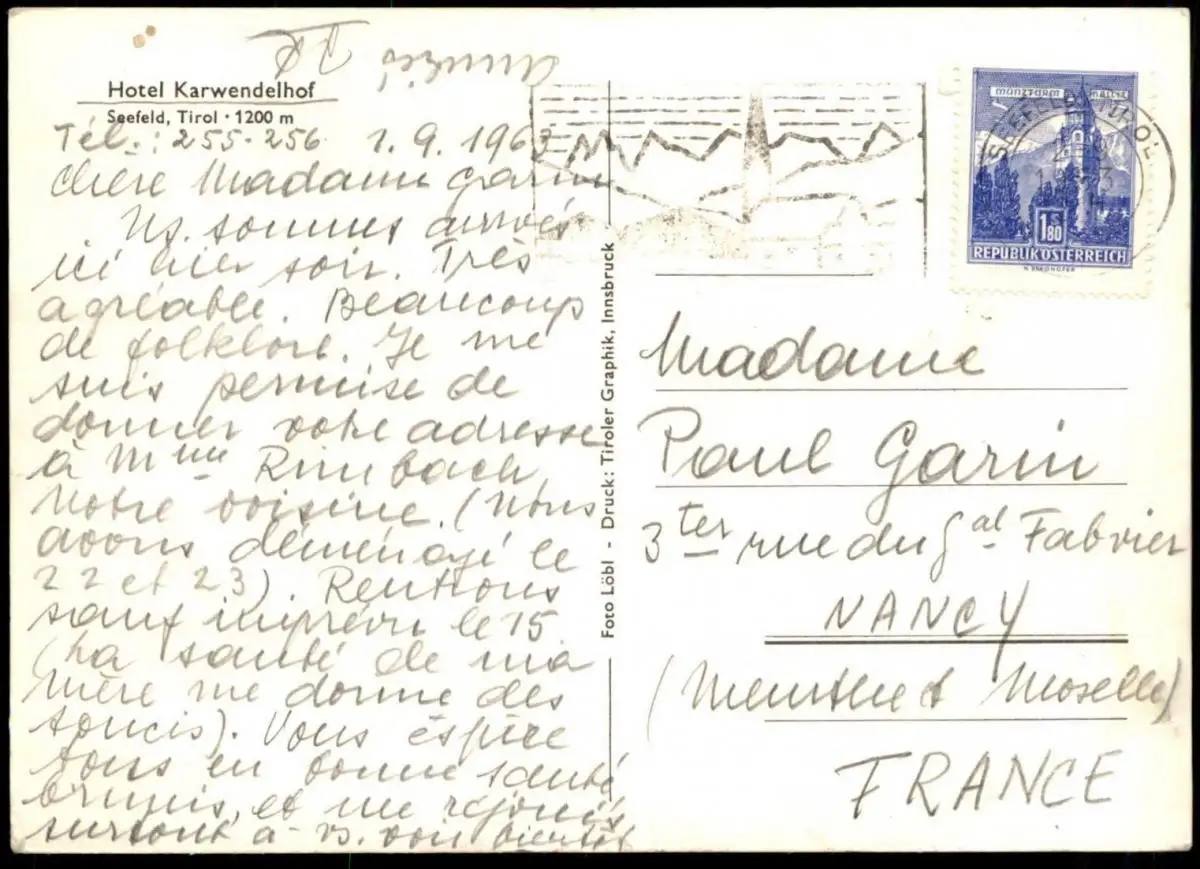 Hotel Karwendelhof
Seefeld, Tirol · 1200 m
Tél.: 255-256 1.9.1963
Chère Madame Garin
Ns. sommes arrivés
ici hier soir. Très
agréable. Beaucoup
de folklore. Je me
suis permise de
donner votre adresse
à Mme Rimbach,
notre voisine. (Nous
avons déménagé le
22 et 23). Rentrons
sauf imprévu le 15.
(La santé de ma
mère me donne des
soucis). Vous espère
tous en bonne santé
et me réjouis
surtout à v. voir bientôt
Amitiés
Foto Löbl - Druck: Tiroler Graphik, Innsbruck
MÜNZTURM
REPUBLIK ÖSTERREICH
1S80
SEEFELD TIROL
Madame
Paul Garin
3ter rue du Gal Fabvier
NANCY
(Meurthe et Moselle)
FRANCE